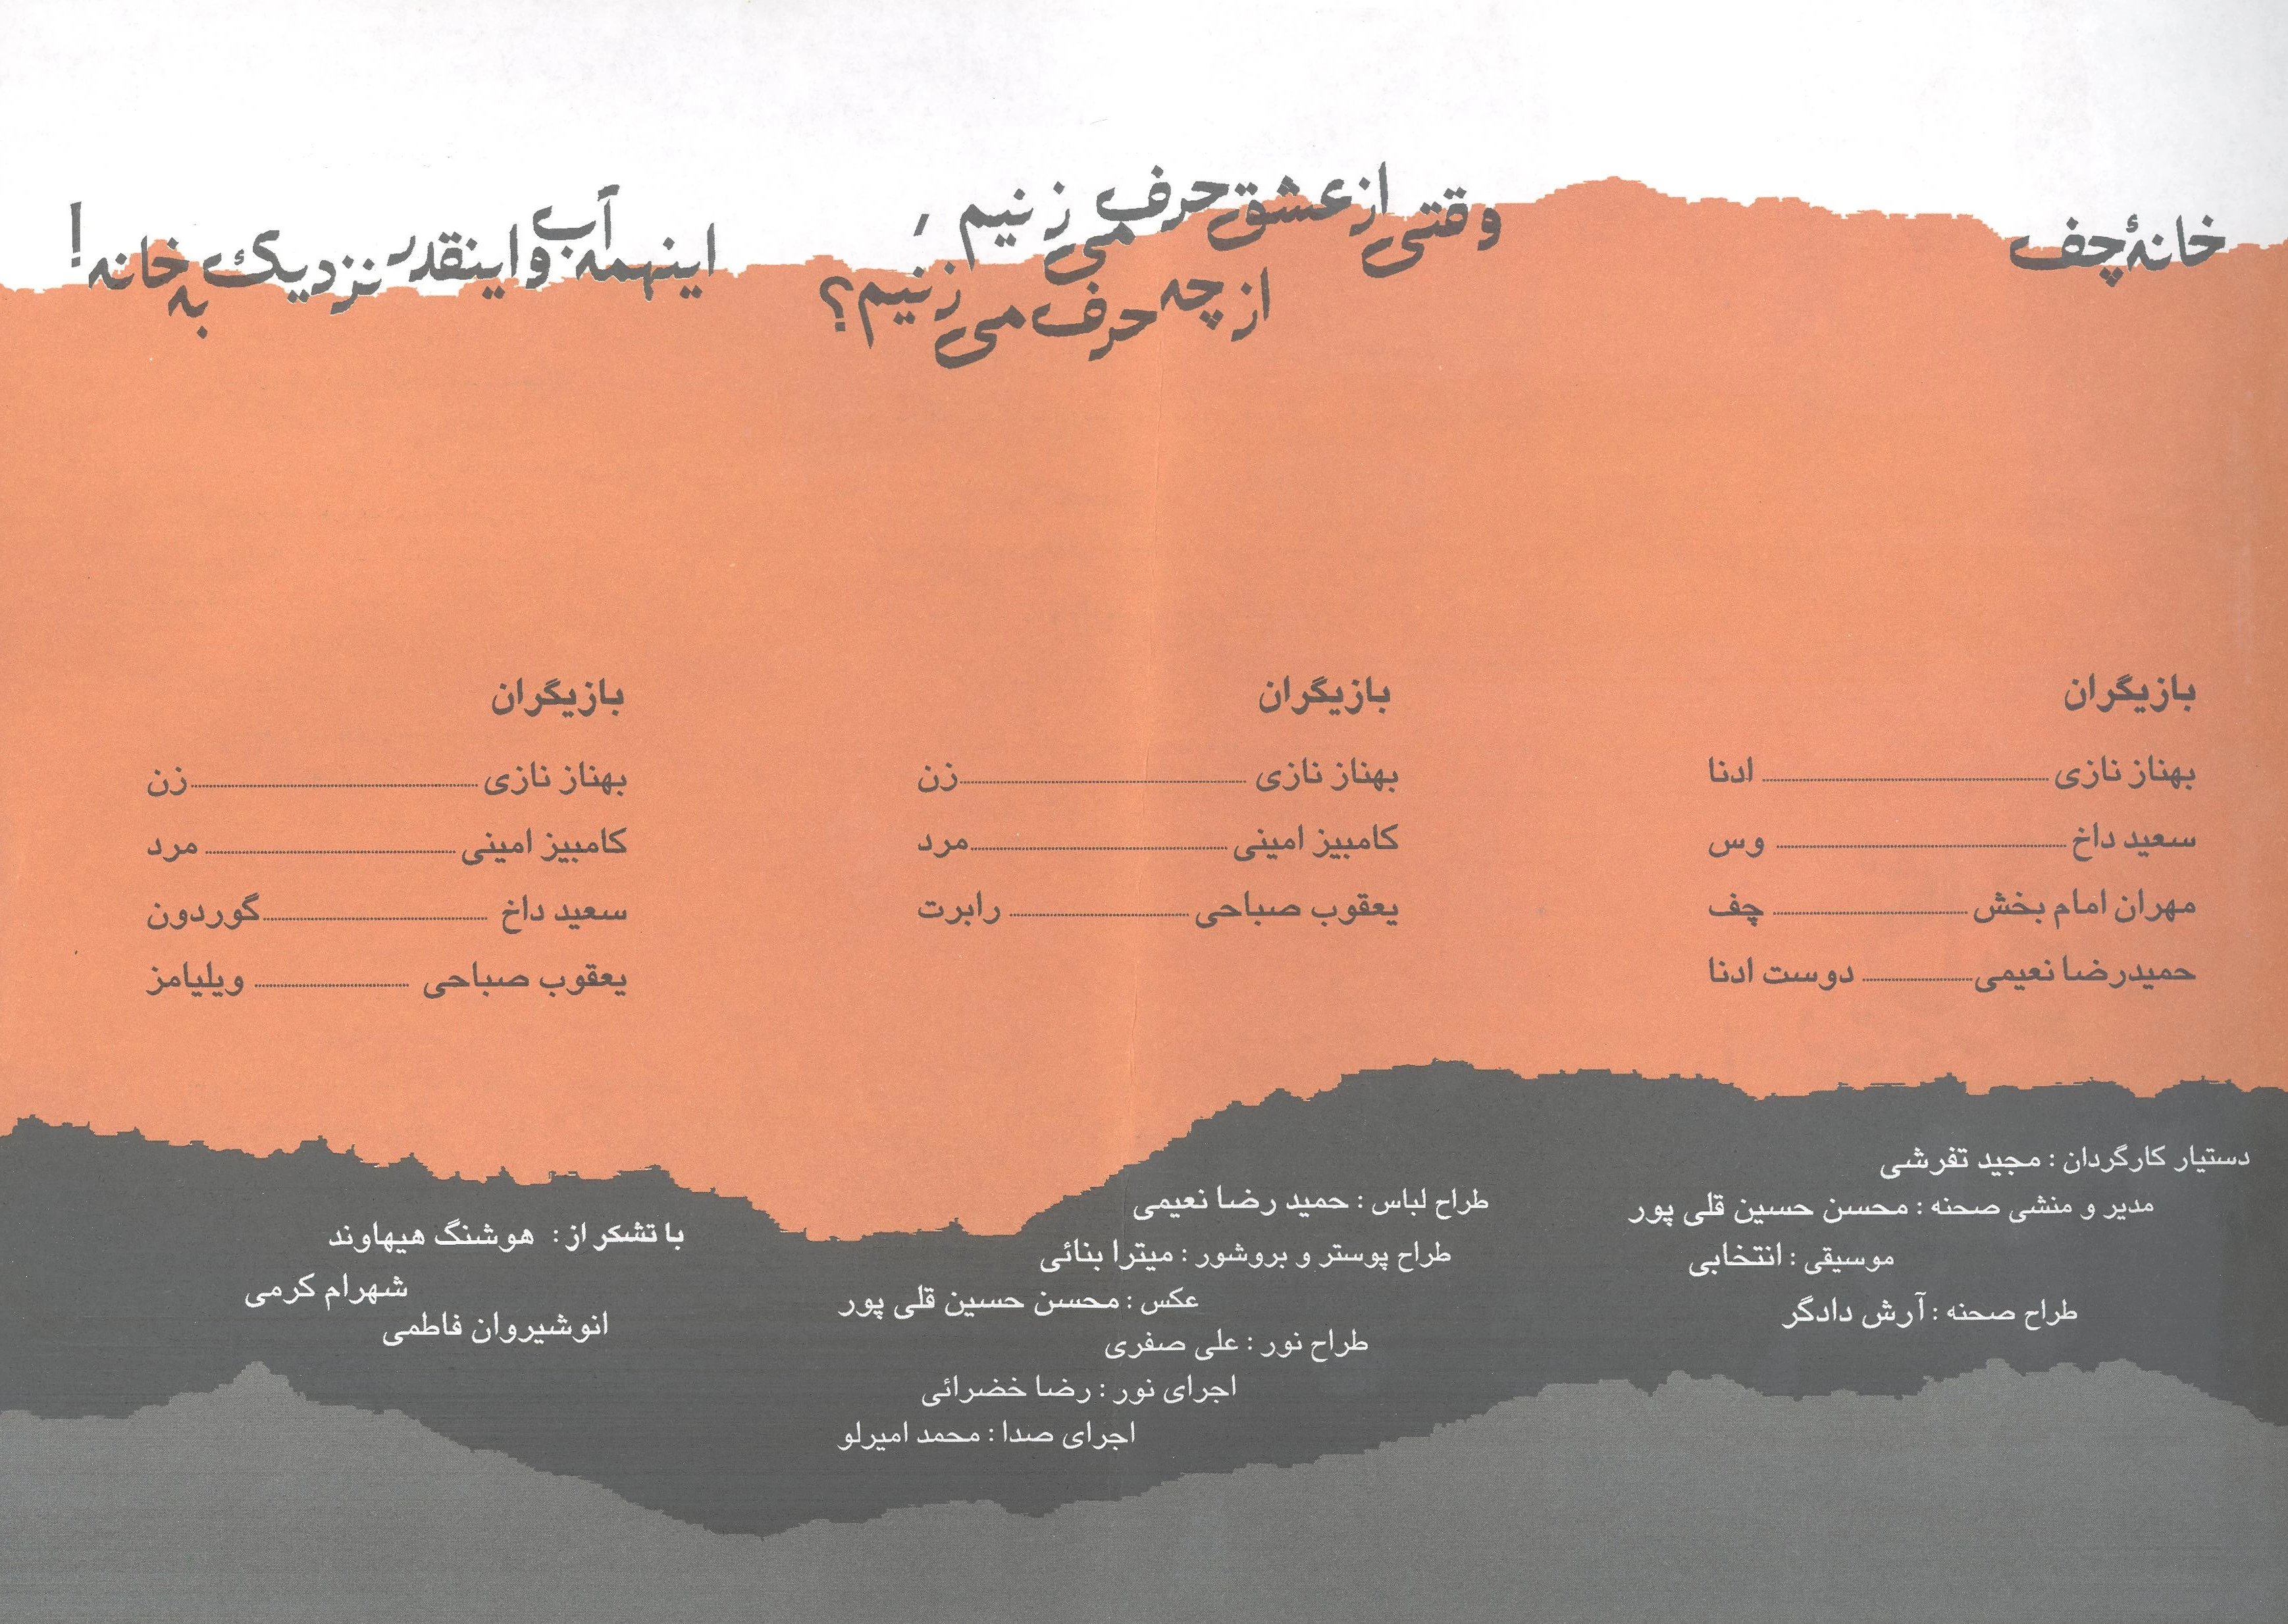 خانهٔ چف
بازیگران
بهناز نازی ........ ادنا
سعید داخ ........ وس
مهران امام بخش ........ چف
حمیدرضا نعیمی ........ دوست ادنا
وقتی از عشق حرف می زنیم ،
از چه حرف می زنیم ؟
بازیگران
بهناز نازی ........ زن
کامبیز امینی ........ مرد
یعقوب صباحی ........ رابرت
اینهمه آب و اینقدر نزدیک به خانه !
بازیگران
بهناز نازی ........ زن
کامبیز امینی ........ مرد
سعید داخ ........ گوردون
یعقوب صباحی ........ ویلیامز
دستیار کارگردان : مجید تفرشی
مدیر و منشی صحنه : محسن حسین قلی پور
موسیقی : انتخابی
طراح صحنه : آرش دادگر
طراح لباس : حمید رضا نعیمی
طراح پوستر و بروشور : میترا بنائی
عکس : محسن حسین قلی پور
طراح نور : علی صفری
اجرای نور : رضا خضرائی
اجرای صدا : محمد امیرلو
با تشکر از : هوشنگ هیهاوند
شهرام کرمی
انوشیروان فاطمی